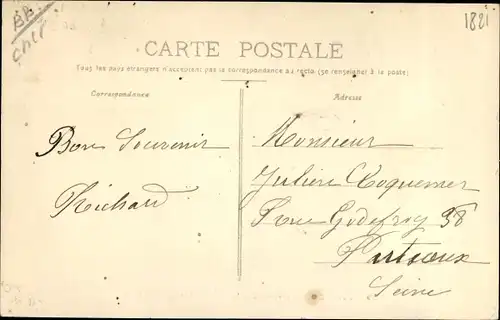 BP.
Cher
1821
CARTE POSTALE
Tous les pays étrangers n'acceptent pas la correspondance au recto (se renseigner à la poste)
Correspondance
Adresse
Bon Souvenir
Richard
Monsieur
Julien Coquemer
Rue Godefroy 38
Puteaux
Seine